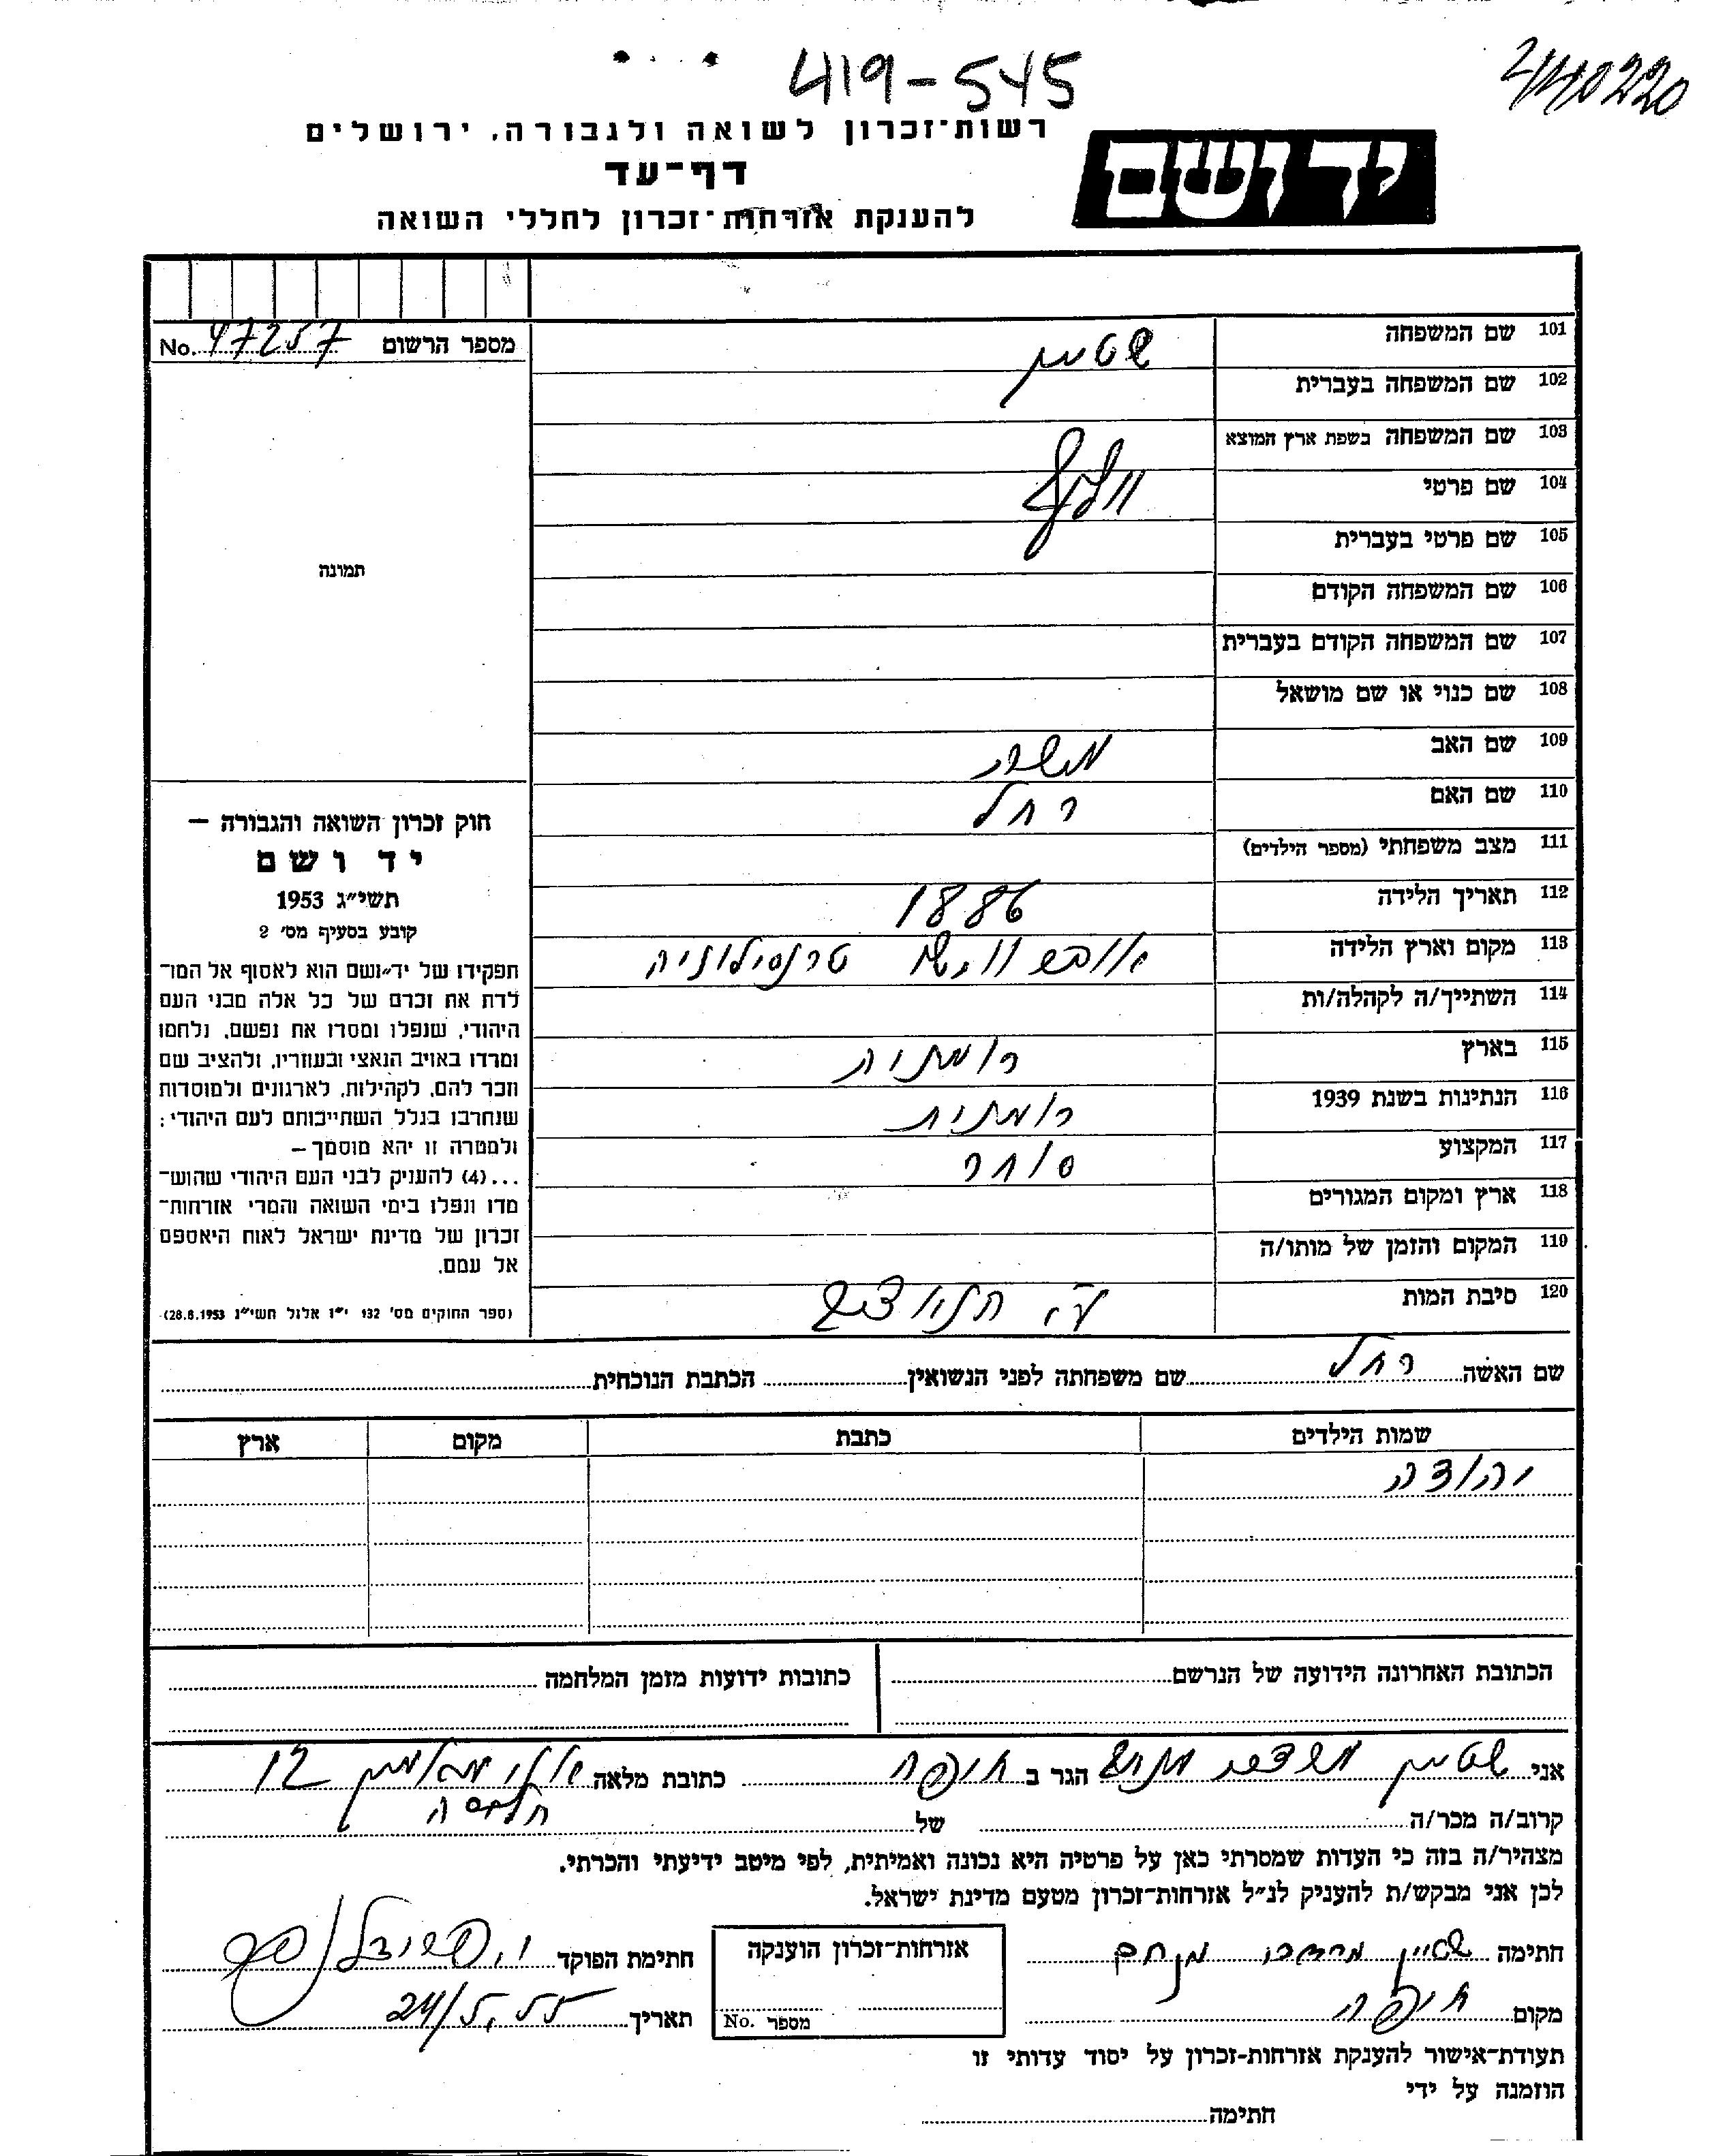 419-545
רשות־זכרון לשואה ולגבורה, ירושלים
דף־עד
להענקת אזרחות־זכרון לחללי השואה
יד ושם
מספר הרשום No. 47257
תמונה
101 שם המשפחה שטיין
102 שם המשפחה בעברית
103 שם המשפחה בשפת ארץ המוצא
104 שם פרטי וולף
105 שם פרטי בעברית
106 שם המשפחה הקודם
107 שם המשפחה הקודם בעברית
108 שם כנוי או שם מושאל
109 שם האב משה
110 שם האם רחל
111 מצב משפחתי (מספר הילדים)
112 תאריך הלידה 1886
113 מקום וארץ הלידה טרנסילוניה
114 השתייך/ה לקהלה/ות
115 בארץ רומניה
116 הנתינות בשנת 1939 רומנית
117 המקצוע סוחר
118 ארץ ומקום המגורים
119 המקום והזמן של מותו/ה
120 סיבת המות
חוק זכרון השואה והגבורה –
יד ושם
תשי״ג 1953
קובע בסעיף מס׳ 2
תפקידו של יד־ושם הוא לאסוף אל המו־
לדת את זכרם של כל אלה מבני העם
היהודי, שנפלו ומסרו את נפשם, נלחמו
ומרדו באויב הנאצי ובעוזריו, ולהציב שם
וזכר להם, לקהילות, לארגונים ולמוסדות
שנחרבו בגלל השתייכותם לעם היהודי;
ולמטרה זו יהא מוסמך –
...(4) להעניק לבני העם היהודי שהוש־
מדו ונפלו בימי השואה והמרי אזרחות־
זכרון של מדינת ישראל לאות היאספם
אל עמם.
(ספר החוקים מס׳ 132 י״ז אלול תשי״ג 28.8.1953)
שם האשה רחל שם משפחתה לפני הנשואין הכתבת הנוכחית
שמות הילדים כתבת מקום ארץ
יהודה
הכתובת האחרונה הידועה של הנרשם
כתובות ידועות מזמן המלחמה
אני שטיין הגר ב חיפה כתובת מלאה 12
קרוב/ה מכר/ה של
מצהיר/ה בזה כי העדות שמסרתי כאן על פרטיה היא נכונה ואמיתית, לפי מיטב ידיעתי והכרתי.
לכן אני מבקש/ת להעניק לנ״ל אזרחות־זכרון מטעם מדינת ישראל.
חתימה שטיין מרדכי מנחם
מקום חיפה
אזרחות־זכרון הוענקה
מספר No.
חתימת הפוקד
תאריך 24/5.55
תעודת־אישור להענקת אזרחות-זכרון על יסוד עדותי זו
הוזמנה על ידי
חתימה